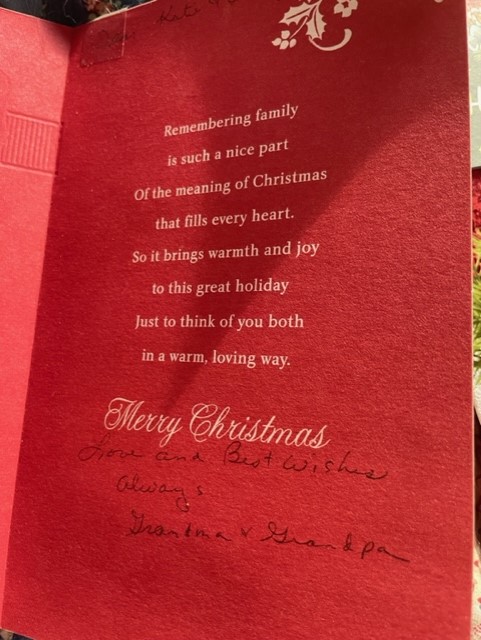 Kate &
Remembering family
is such a nice part
Of the meaning of Christmas
that fills every heart.
So it brings warmth and joy
to this great holiday
Just to think of you both
in a warm, loving way.
Merry Christmas
Love and Best Wishes
always
Grandma & Grandpa